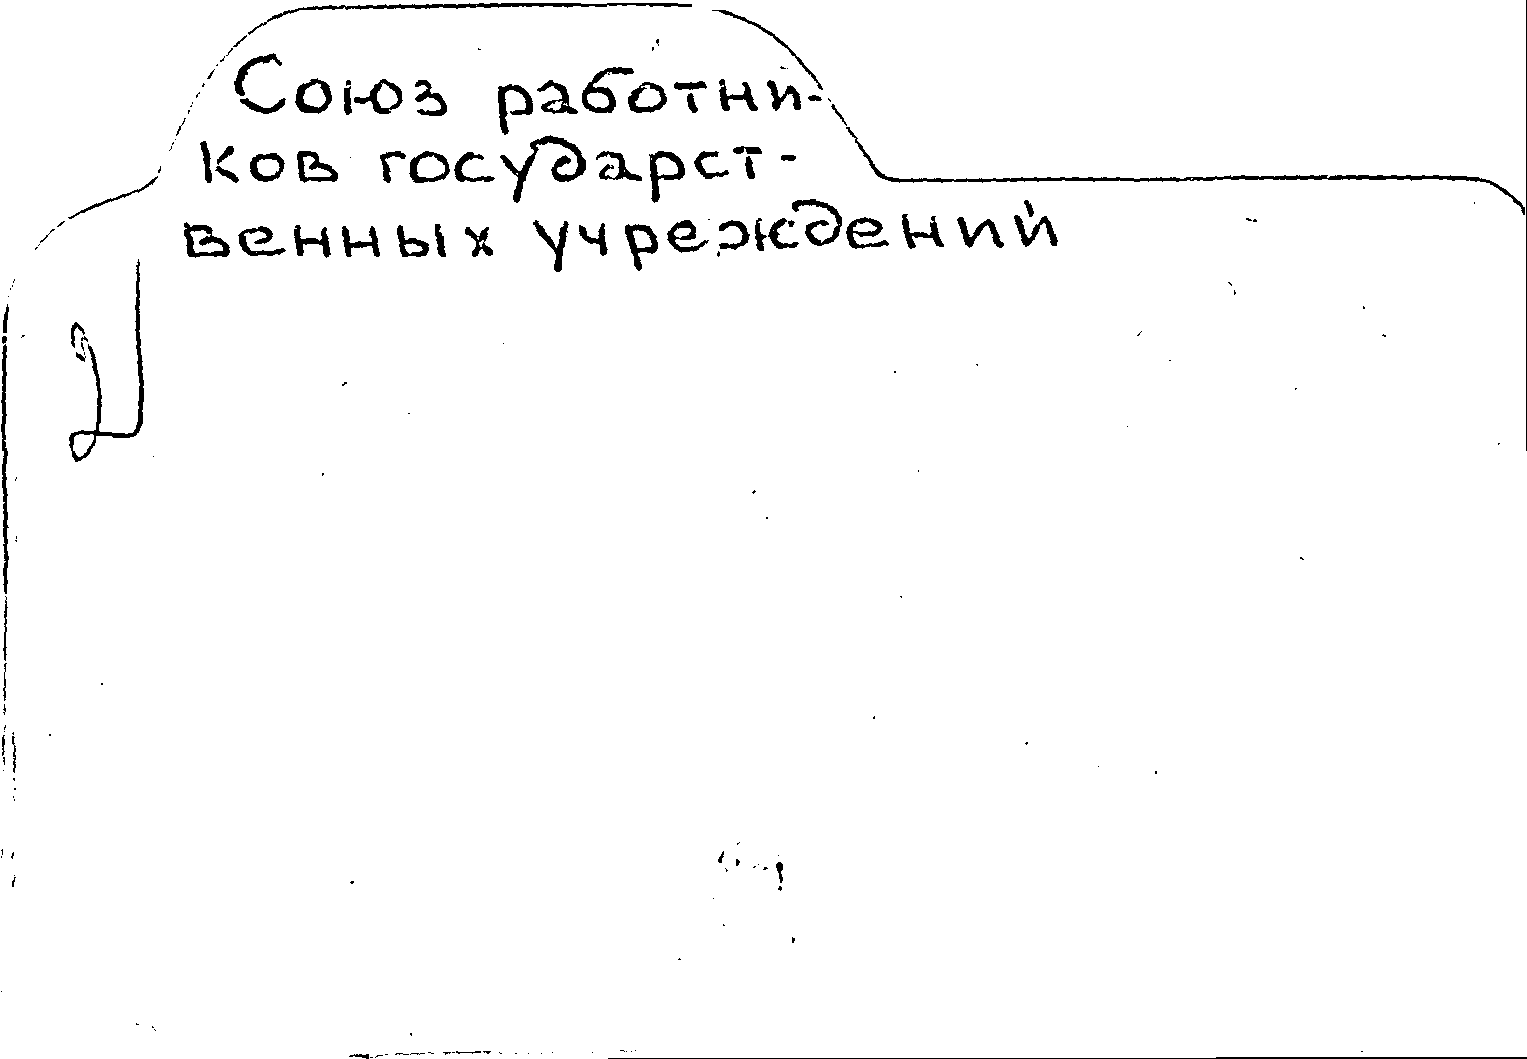 Союз работни-
ков государст-
венных учреждений